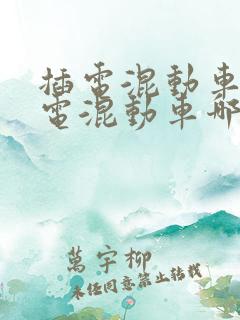 插電混動車
電混動車哪
萬宇柳
未經同意禁止轉載